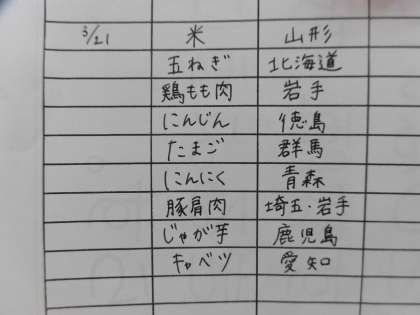 3/21 米 山形
五ねぎ 北海道
鶏もも肉 岩手
にんじん 徳島
たまご 群馬
にんにく 青森
豚肩肉 埼玉・岩手
じゃが芋 鹿児島
キャベツ 愛知